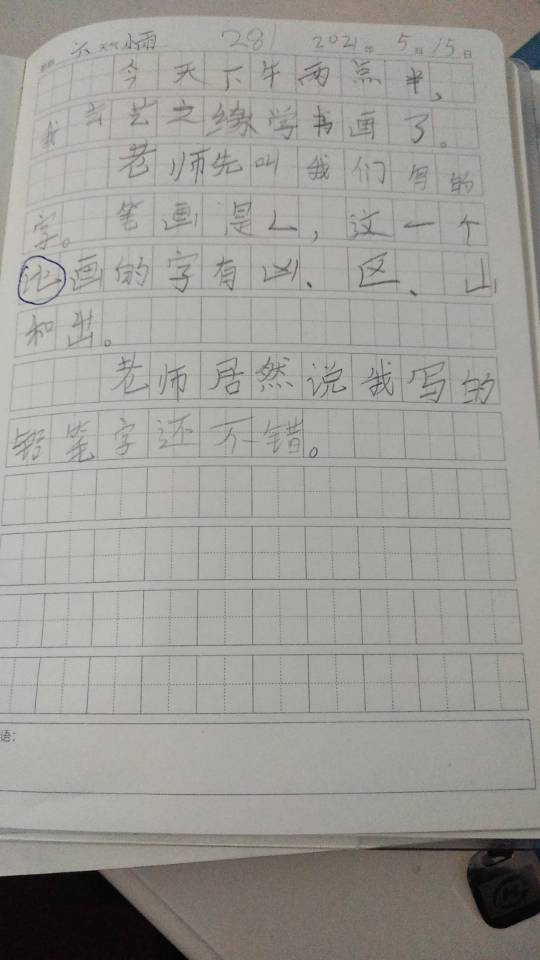 六 天气 小雨 281 2021年 5月 15日
今天下午两点半,
我去艺之缘学书画了。
老师先叫我们写的
字。笔画是ㄥ,这一个
比画的字有凶、区、山
和出。
老师居然说我写的
铅笔字还不错。
语: